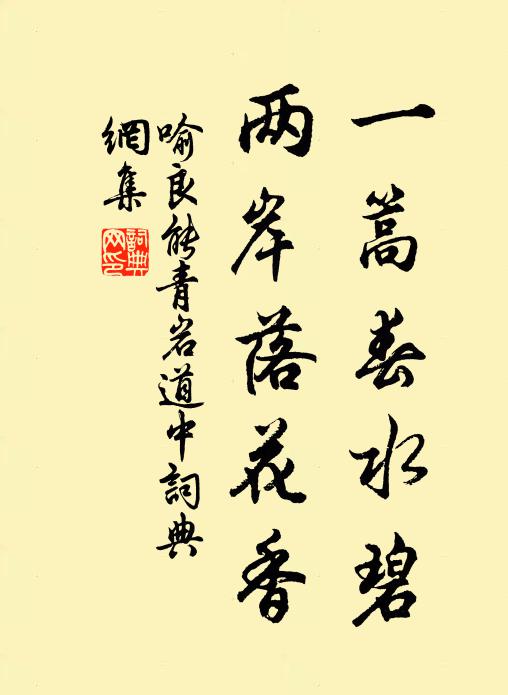 一篙春水碧
两岸落花香
喻良能青岩道中詞典
網集
詞典
网印